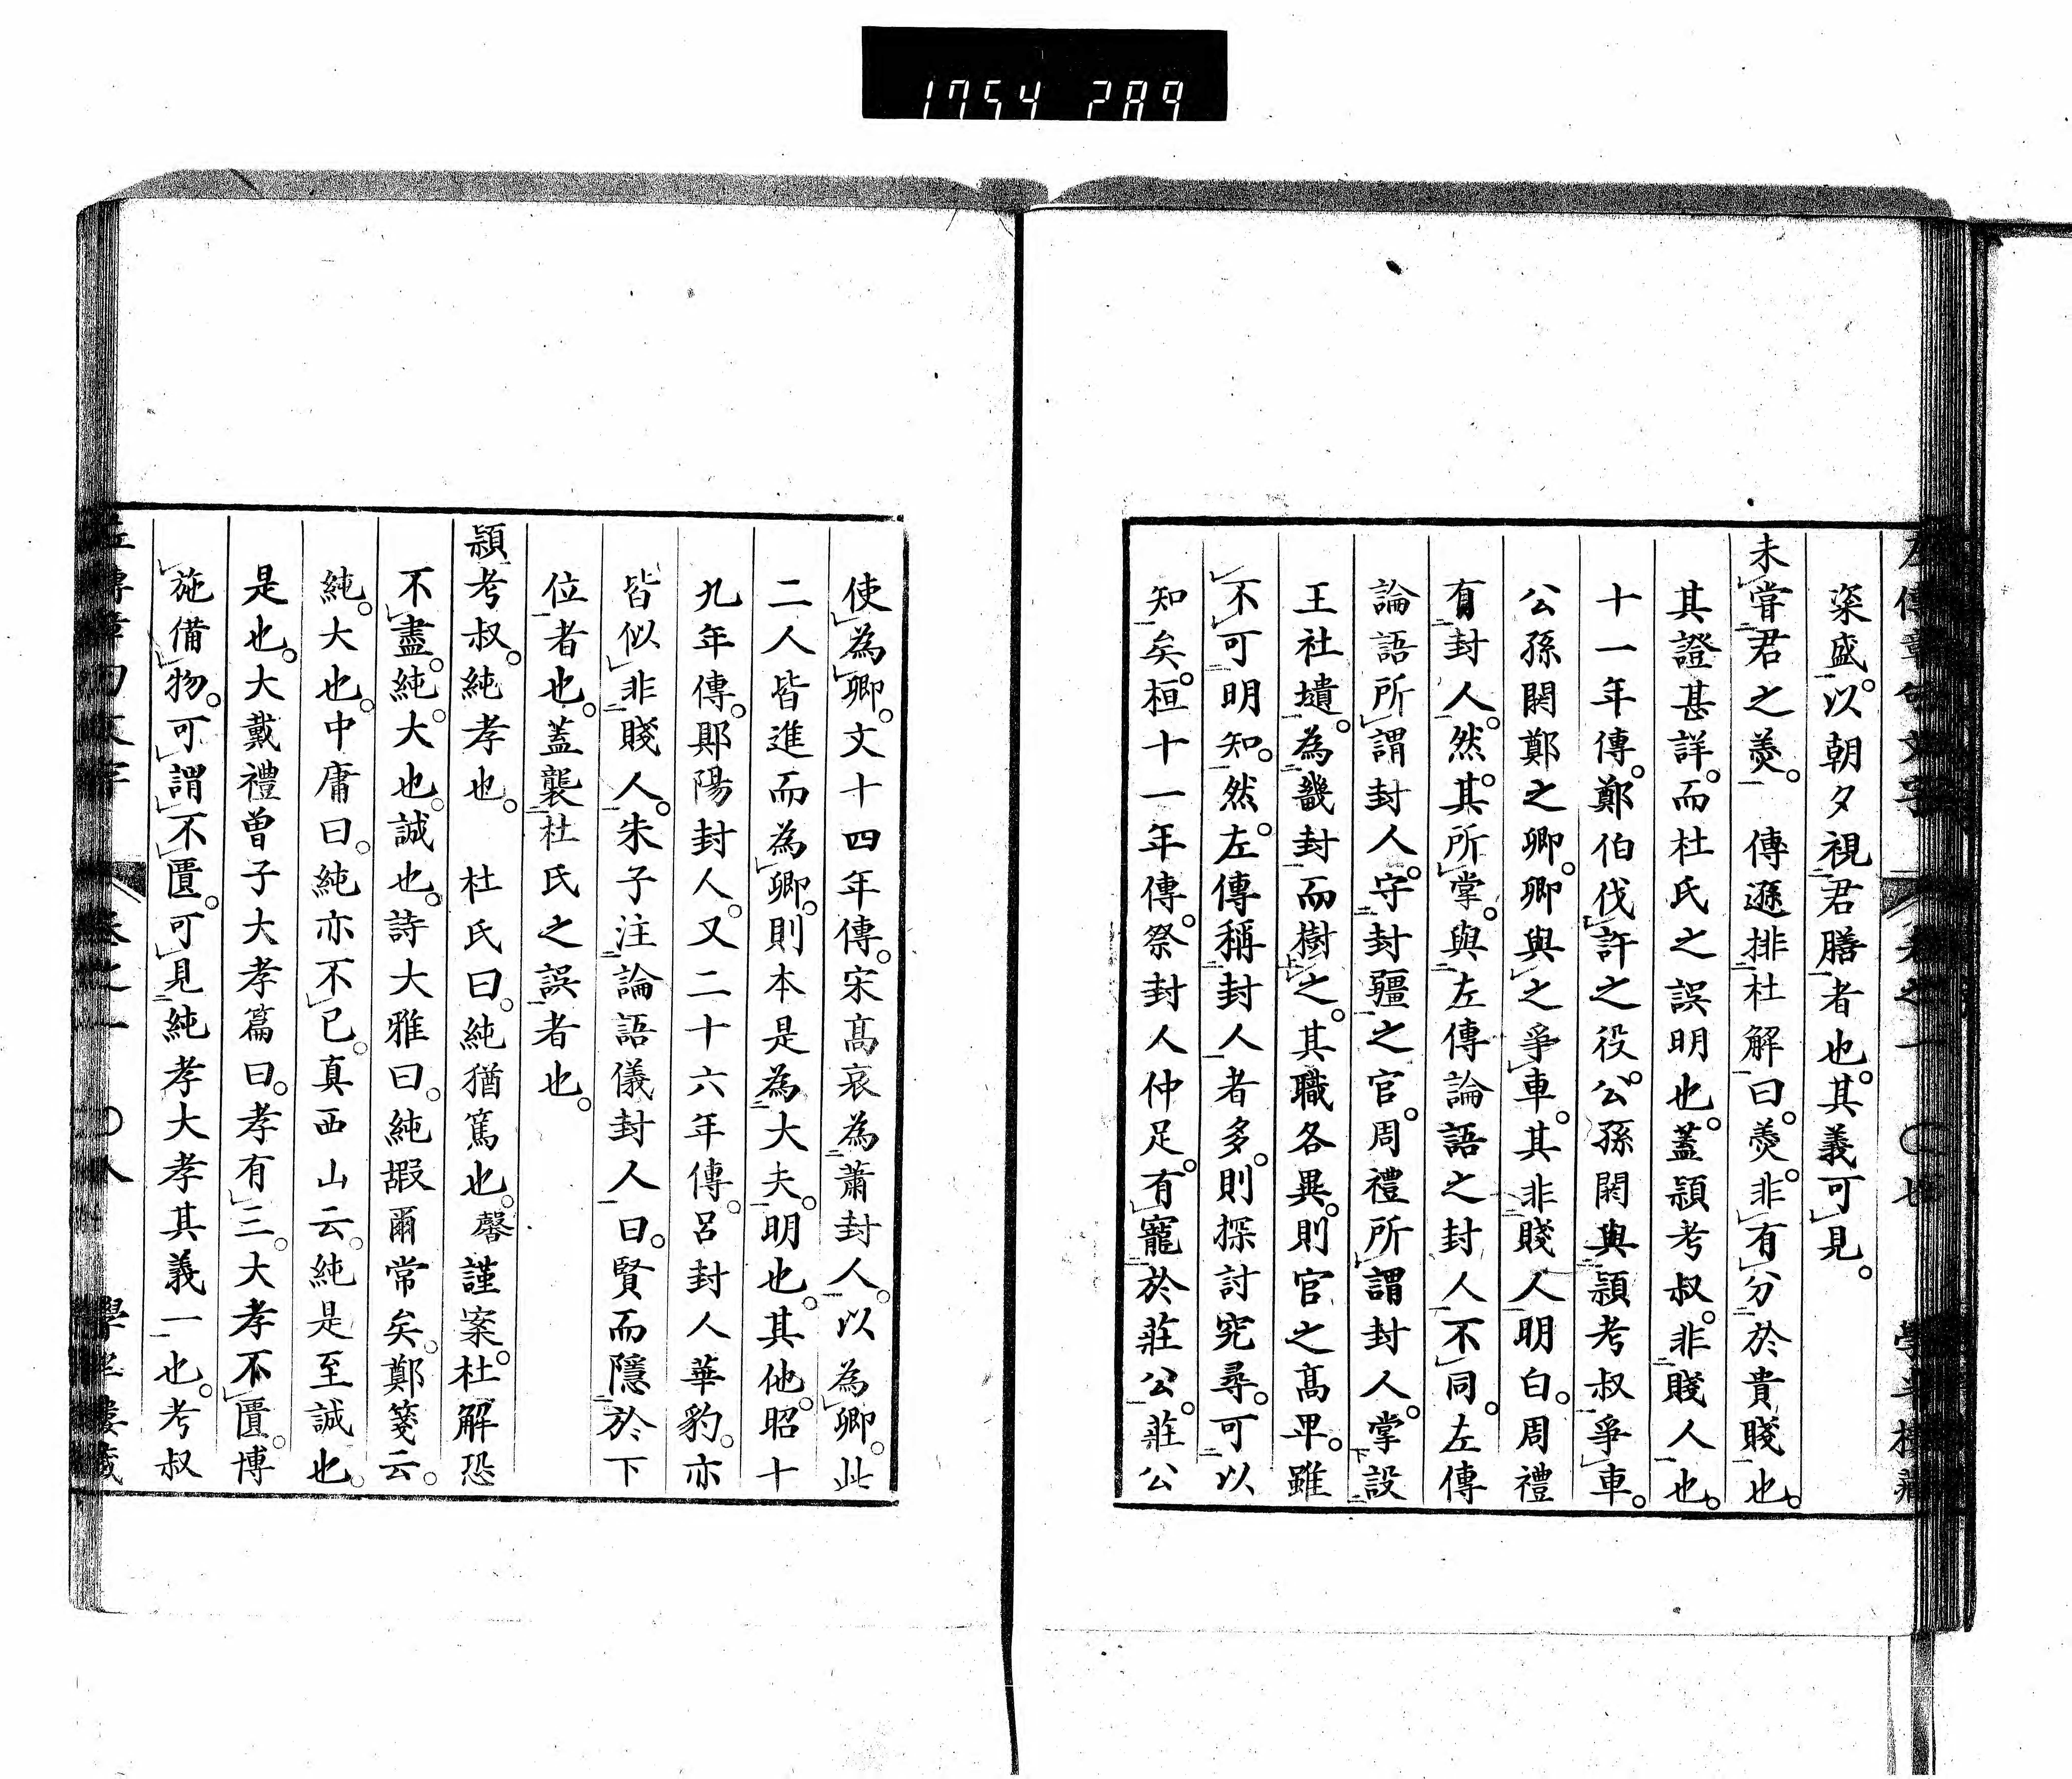 1754 289
粢盛。以朝夕視君膳者也。其義可見。
未嘗君之羮。 傳遜排杜解曰。羮。非有分於貴賤也。
其證甚詳。而杜氏之誤明也。蓋潁考叔。非賤人也。
十一年傳。鄭伯伐許之役。公孫閼與潁考叔爭車。
公孫閼鄭之卿。卿與之爭車。其非賤人明白。周禮
有封人。然。其所掌。與左傳論語之封人不同。左傳
論語所謂封人。守封疆之官。周禮所謂封人。掌設
王社壝。為畿封而樹之。其職各異。則官之高卑。雖
不可明知。然。左傳稱封人者多。則探討究尋。可以
知矣。桓十一年傳。祭封人仲足。有寵於莊公。莊公
使為卿。文十四年傳。宋高哀為蕭封人。以為卿。此
二人皆進而為卿。則本是為大夫。明也。其他。昭十
九年傳。郹陽封人。又二十六年傳。呂封人華豹。亦
皆似非賤人。朱子注論語儀封人曰。賢而隱於下
位者也。蓋襲杜氏之誤者也。
潁考叔。純孝也。 杜氏曰。純猶篤也。馨謹案。杜解恐
不盡。純。大也。誠也。詩大雅曰。純嘏爾常矣。鄭箋云。
純。大也。中庸曰。純亦不已。真西山云。純是至誠也。
是也。大戴禮曾子大孝篇曰。孝有三。大孝不匱。博
施備物。可謂不匱。可見純孝大孝其義一也。考叔